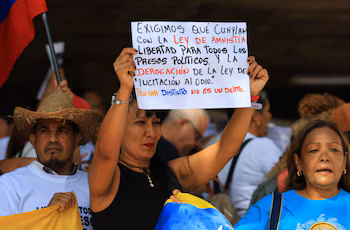 EXIGIMOS QUE CUMPLAN
CON LA LEY DE AMNISTIA
LIBERTAD PARA TODOS LOS
PRESOS POLITICOS Y LA
DEROGACIÓN DE LA LEY DE
"INCITACIÓN AL ODIO".
"PENSAR DISTINTO NO ES UN DELITO.